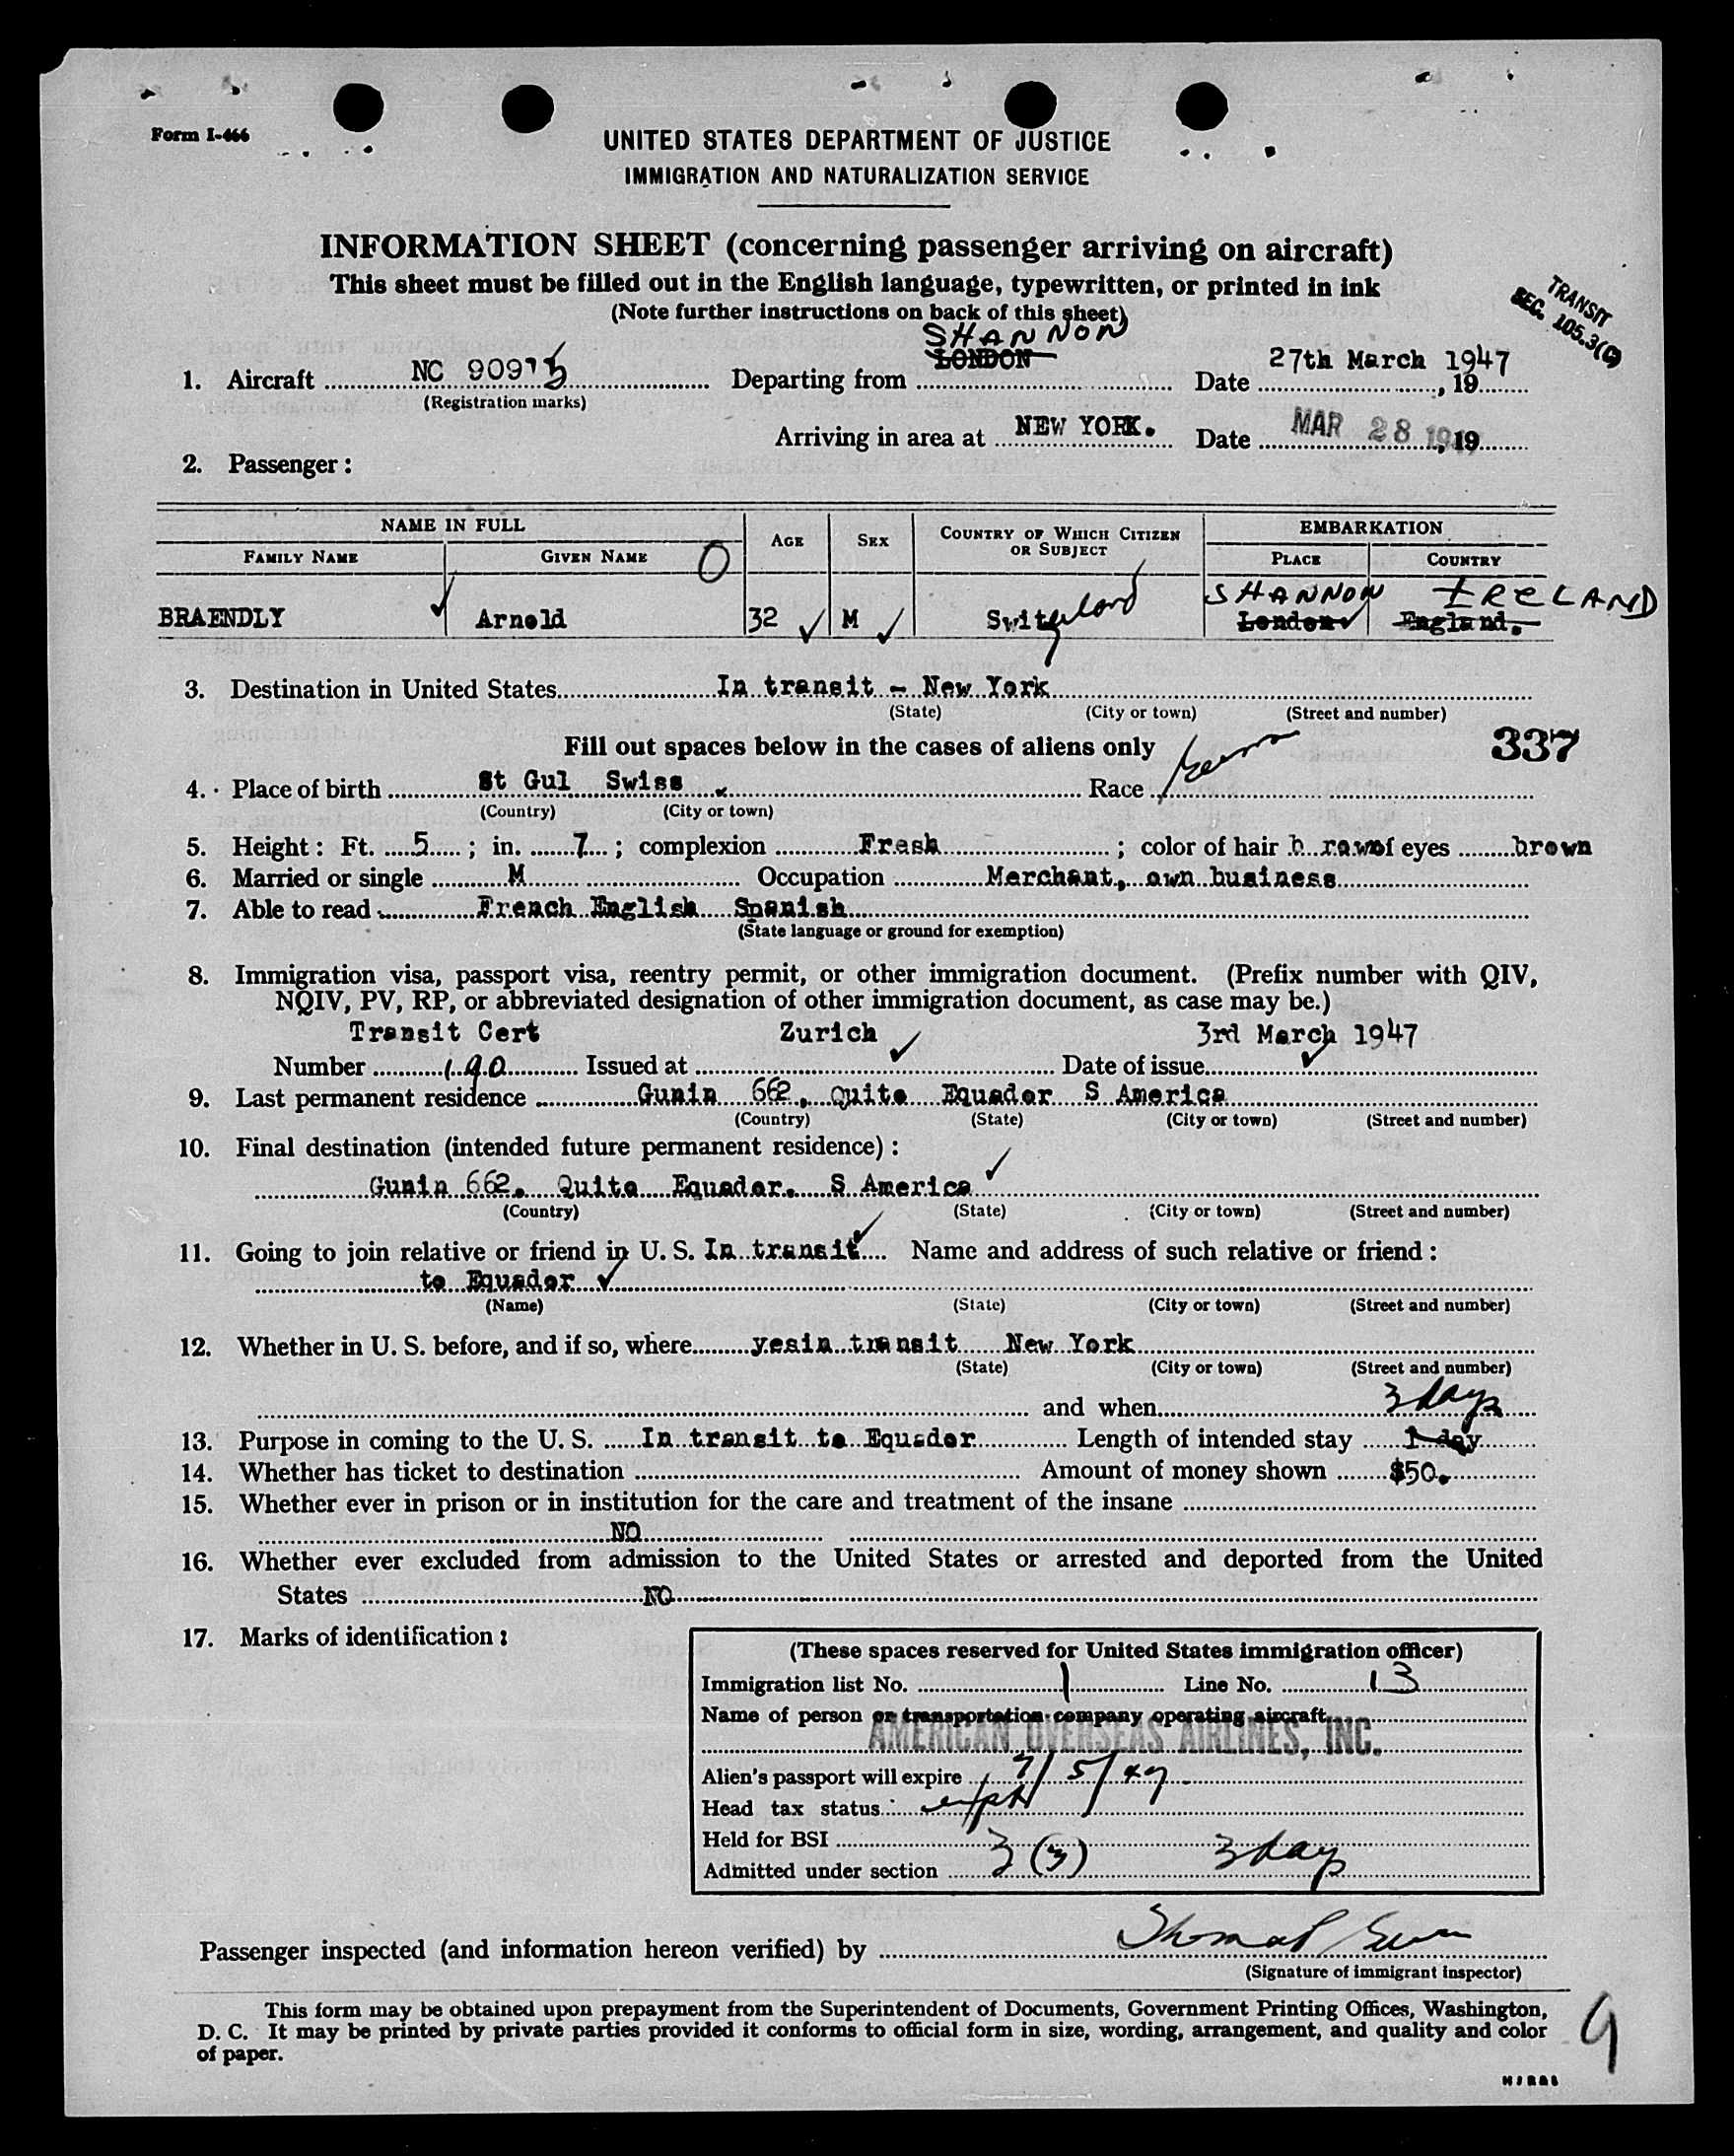 Form I-466
UNITED STATES DEPARTMENT OF JUSTICE
IMMIGRATION AND NATURALIZATION SERVICE
INFORMATION SHEET (concerning passenger arriving on aircraft)
This sheet must be filled out in the English language, typewritten, or printed in ink
(Note further instructions on back of this sheet)
TRANSIT
SEC. 105.3(C)
SHANNON
1. Aircraft NC 90913 Departing from LONDON Date 27th March 1947, 19
(Registration marks)
Arriving in area at NEW YORK. Date MAR 28 19, 19
2. Passenger:
NAME IN FULL AGE SEX COUNTRY OF WHICH CITIZEN OR SUBJECT EMBARKATION
FAMILY NAME GIVEN NAME O PLACE COUNTRY
SHANNON IRELAND
BRAENDLY Arnold 32 M Switzerland London England.
3. Destination in United States In transit - New York
(State) (City or town) (Street and number)
Fill out spaces below in the cases of aliens only 337
4. Place of birth St Gul Swiss Race
(Country) (City or town)
5. Height: Ft. 5; in. 7; complexion Fresh; color of hair b rown of eyes brown
6. Married or single M Occupation Merchant, own business
7. Able to read French English Spanish
(State language or ground for exemption)
8. Immigration visa, passport visa, reentry permit, or other immigration document. (Prefix number with QIV,
NQIV, PV, RP, or abbreviated designation of other immigration document, as case may be.)
Transit Cert Zurich 3rd March 1947
Number 190 Issued at Date of issue
9. Last permanent residence Gunin 662, Quito Equador S America
(Country) (State) (City or town) (Street and number)
10. Final destination (intended future permanent residence):
Gunin 662. Quito Equador. S America
(Country) (State) (City or town) (Street and number)
11. Going to join relative or friend in U. S. In transit Name and address of such relative or friend:
to Equador
(Name) (State) (City or town) (Street and number)
12. Whether in U. S. before, and if so, where yesin transit New York
(State) (City or town) (Street and number)
and when
3 days
13. Purpose in coming to the U. S. In transit to Equador Length of intended stay 1 day
14. Whether has ticket to destination Amount of money shown $50.
15. Whether ever in prison or in institution for the care and treatment of the insane
NO
16. Whether ever excluded from admission to the United States or arrested and deported from the United
States NO
17. Marks of identification:
(These spaces reserved for United States immigration officer)
Immigration list No. 1 Line No. 13
Name of person or transportation company operating aircraft
AMERICAN OVERSEAS AIRLINES, INC.
Alien's passport will expire 7/5/49
Head tax status
Held for BSI
Admitted under section 3(3) 3 days
Passenger inspected (and information hereon verified) by
(Signature of immigrant inspector)
This form may be obtained upon prepayment from the Superintendent of Documents, Government Printing Offices, Washington,
D. C. It may be printed by private parties provided it conforms to official form in size, wording, arrangement, and quality and color
of paper.
9